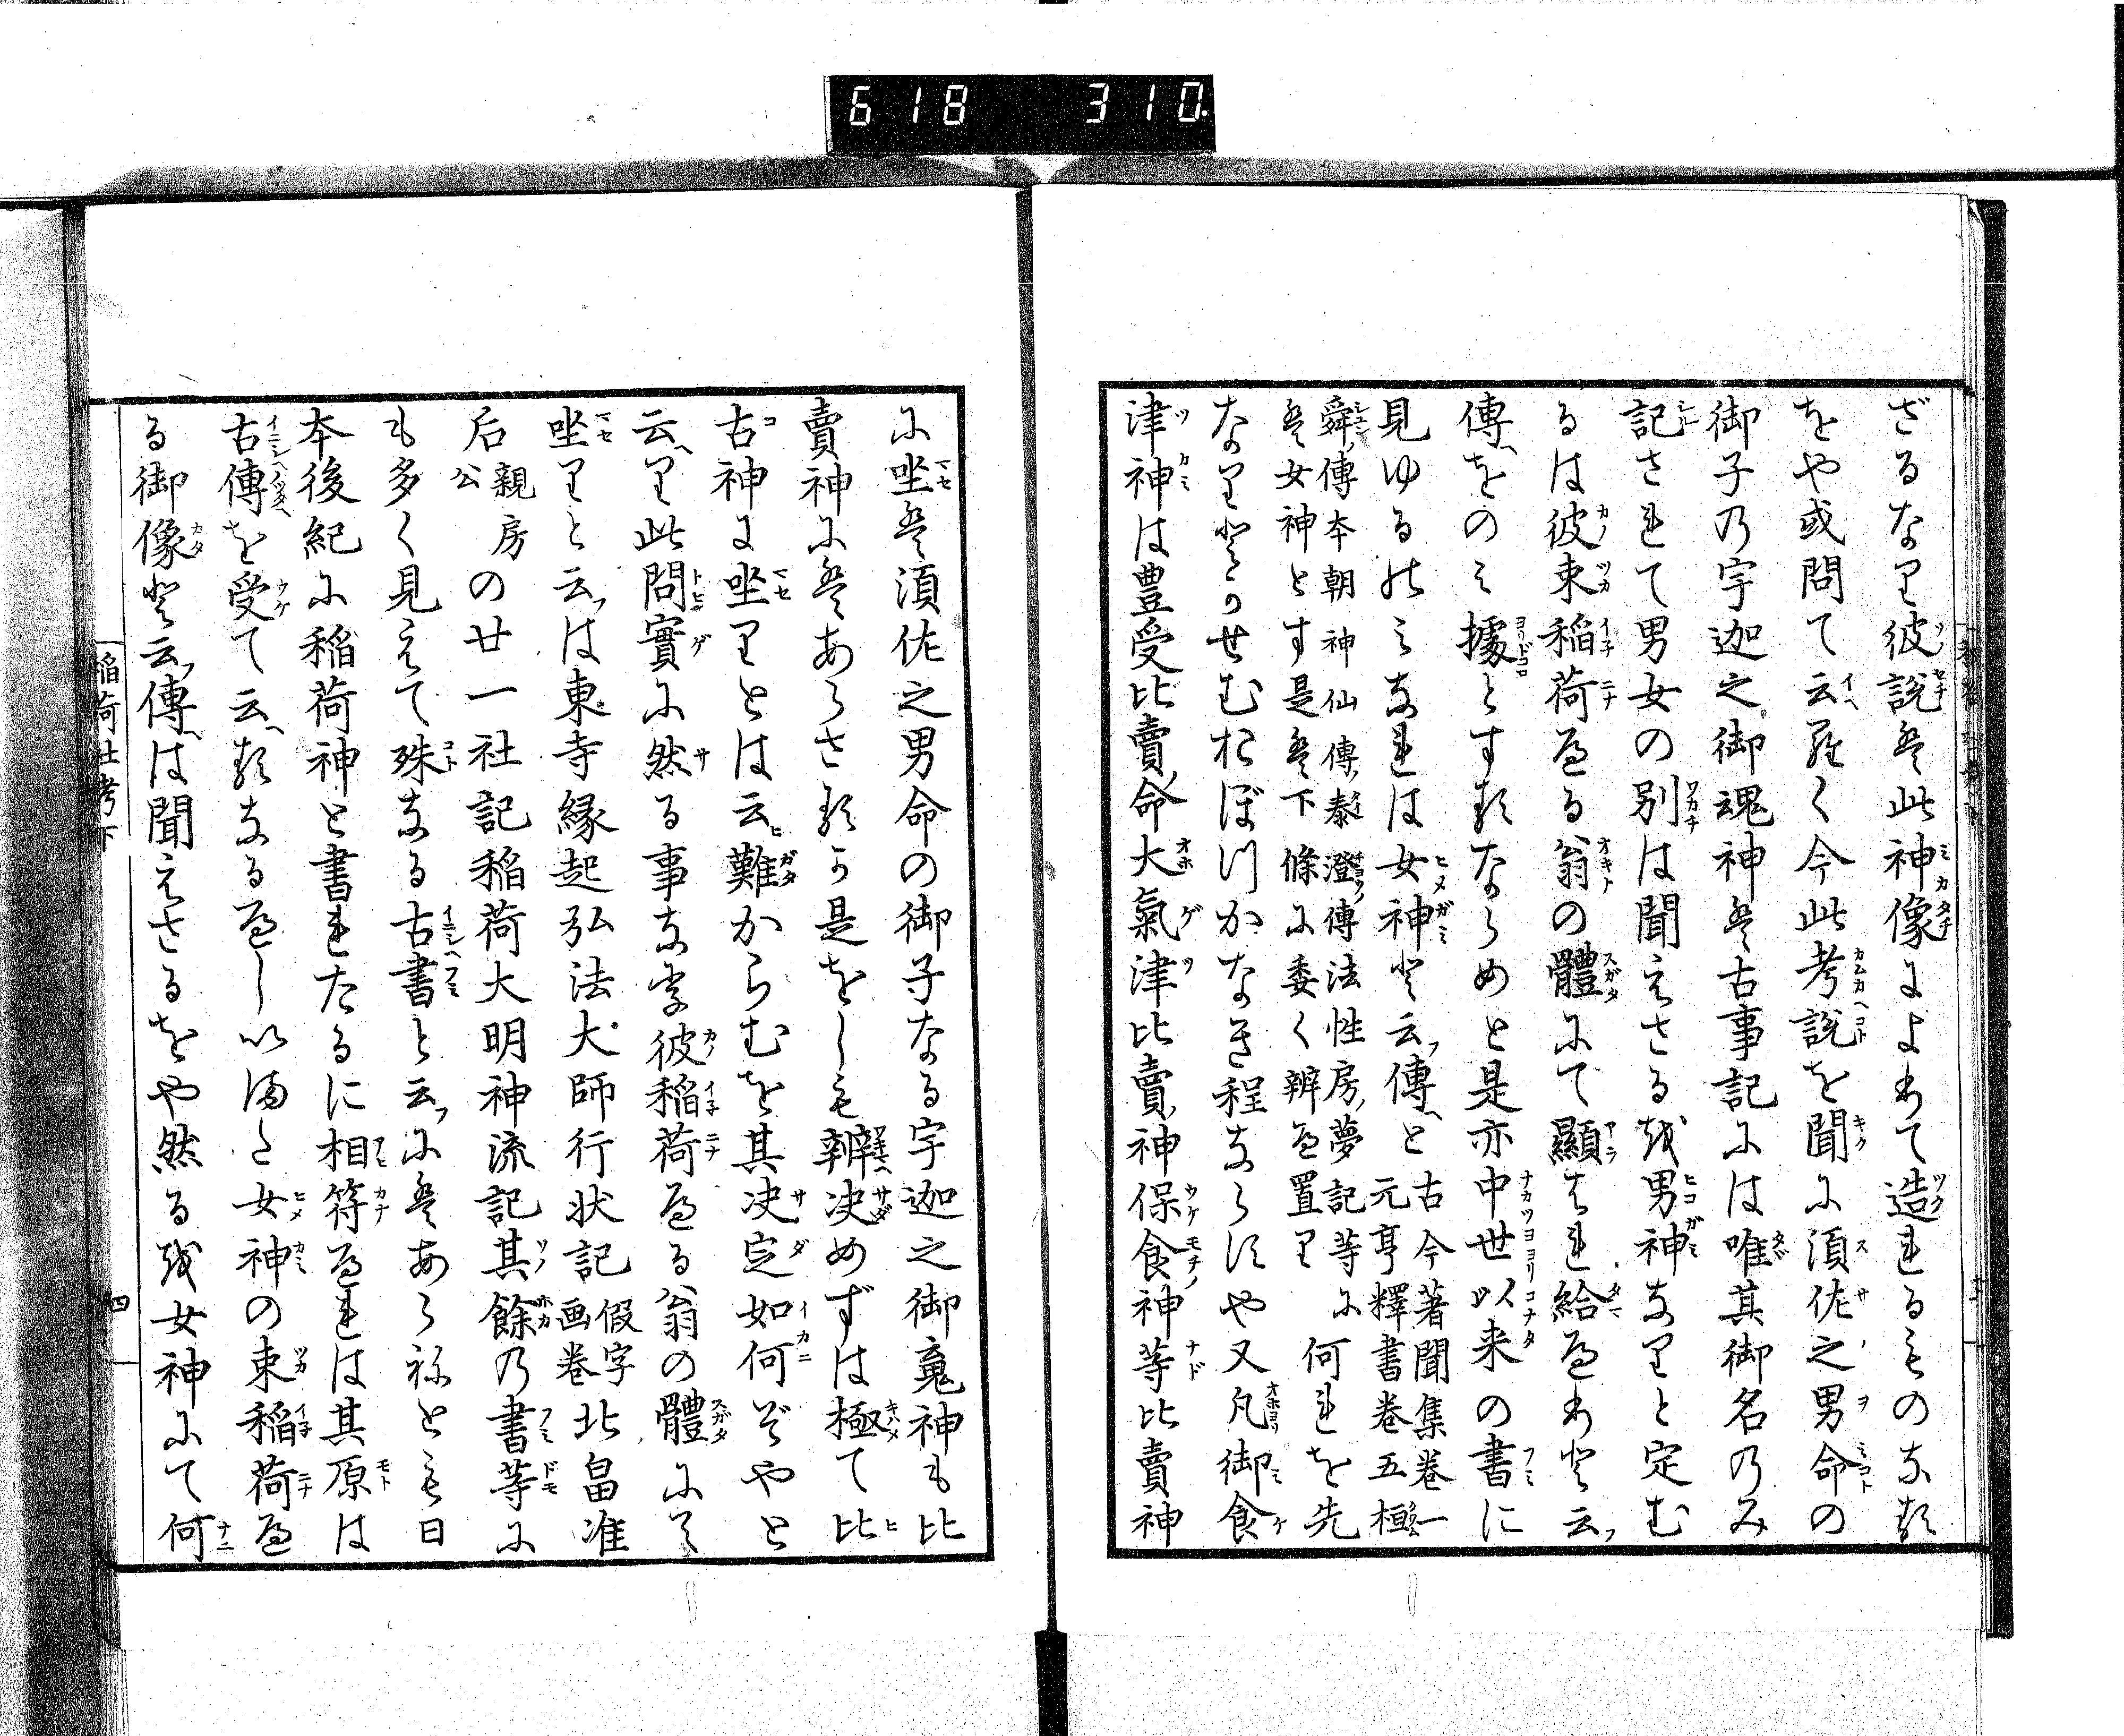 618 310.
ざるなり彼説は此神像によりて造れるものなる
をや或問て云けらく今此考説を聞に須佐之男命の
御子乃宇迦之御魂神は古事記には唯其御名乃み
記されて男女の別は聞えさるを男神なりと定む
るは彼束稲荷へる翁の體にて顯はれ給へりと云
傳をのみ據とするならめと是亦中世以来の書に
見ゆるのみなれは女神と云傳と
古今著聞集卷一
元亨釋書卷五極
舜傳本朝神仙傳泰澄傳法性房夢記等に
は女神とす是は下條に委く辨へ置り
何れを先
なりとかせむおぼつかなき程ならすや又凡御食
津神は豊受比賣命大氣津比賣神保食神等比賣神
に坐は須佐之男命の御子なる宇迦之御䰟神も比
賣神にはあらさるか是をしも辨決めずは極て比
古神に坐りとは云難からむを其决定如何ぞやと
云り此問實に然る事なり彼稲荷へる翁の體にて
坐りと云は東寺縁起弘法大師行状記
假字
画卷
北畠准
后
親房
公
の廿一社記稲荷大明神流記其餘乃書等に
も多く見えて殊なる古書と云にはあらねとも日
本後紀に稲荷神と書れたるに相符へれは其原は
古傳を受て云るなるへし以海と女神の束稲荷へ
る御像と云傳は聞えさるをや然るを女神にて何
稲荷社考下
四